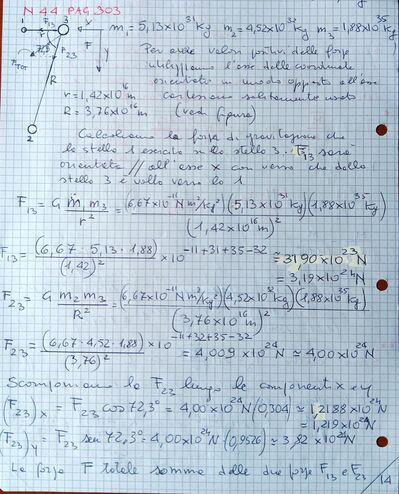 N 44 PAG 303
m₁ = 5,13×10³¹ kg m₂ = 4,52×10³² kg m₃ = 1,88×10³⁵ kg
1 F₁₃ 3 x
72,3° F₂₃ F y
F_TOT
R
2
Per avere valori positivi delle forze
utilizziamo l'asse delle coordinate
orientate in modo opposto all'asse
cartesiano solitamente usato
(vedi figura)
r = 1,42×10¹⁶ m
R = 3,76×10¹⁶ m
Calcoliamo la forza di gravitazione che
la stella 1 esercita sulla stella 3. F₁₃ sarà
orientata // all'asse x con verso che dalla
stella 3 è volto verso la 1
F₁₃ = G m₁ m₃ / r² = (6,67×10⁻¹¹ N m²/kg²)(5,13×10³¹ kg)(1,88×10³⁵ kg) / (1,42×10¹⁶ m)²
F₁₃ = (6,67·5,13·1,88) / (1,42)² ×10^(-11+31+35-32) ≅ 31,90×10²³ N
= 3,19×10²⁴ N
F₂₃ = G m₂ m₃ / R² = (6,67×10⁻¹¹ N m²/kg²)(4,52×10³² kg)(1,88×10³⁵ kg) / (3,76×10¹⁶ m)²
F₂₃ = (6,67·4,52·1,88) / (3,76)² ×10^(-11+32+35-32) = 4,009×10²⁴ N ≅ 4,00×10²⁴ N
Scomponiamo la F₂₃ lungo le componenti x e y
(F₂₃)x = F₂₃ cos 72,3° = 4,00×10²⁴ N (0,304) ≅ 1,2188×10²⁴ N
= 1,219×10²⁴ N
(F₂₃)y = F₂₃ sen 72,3° = 4,00×10²⁴ N (0,9526) ≅ 3,82×10²⁴ N
La forza F totale somma delle due forze F₁₃ e F₂₃
14